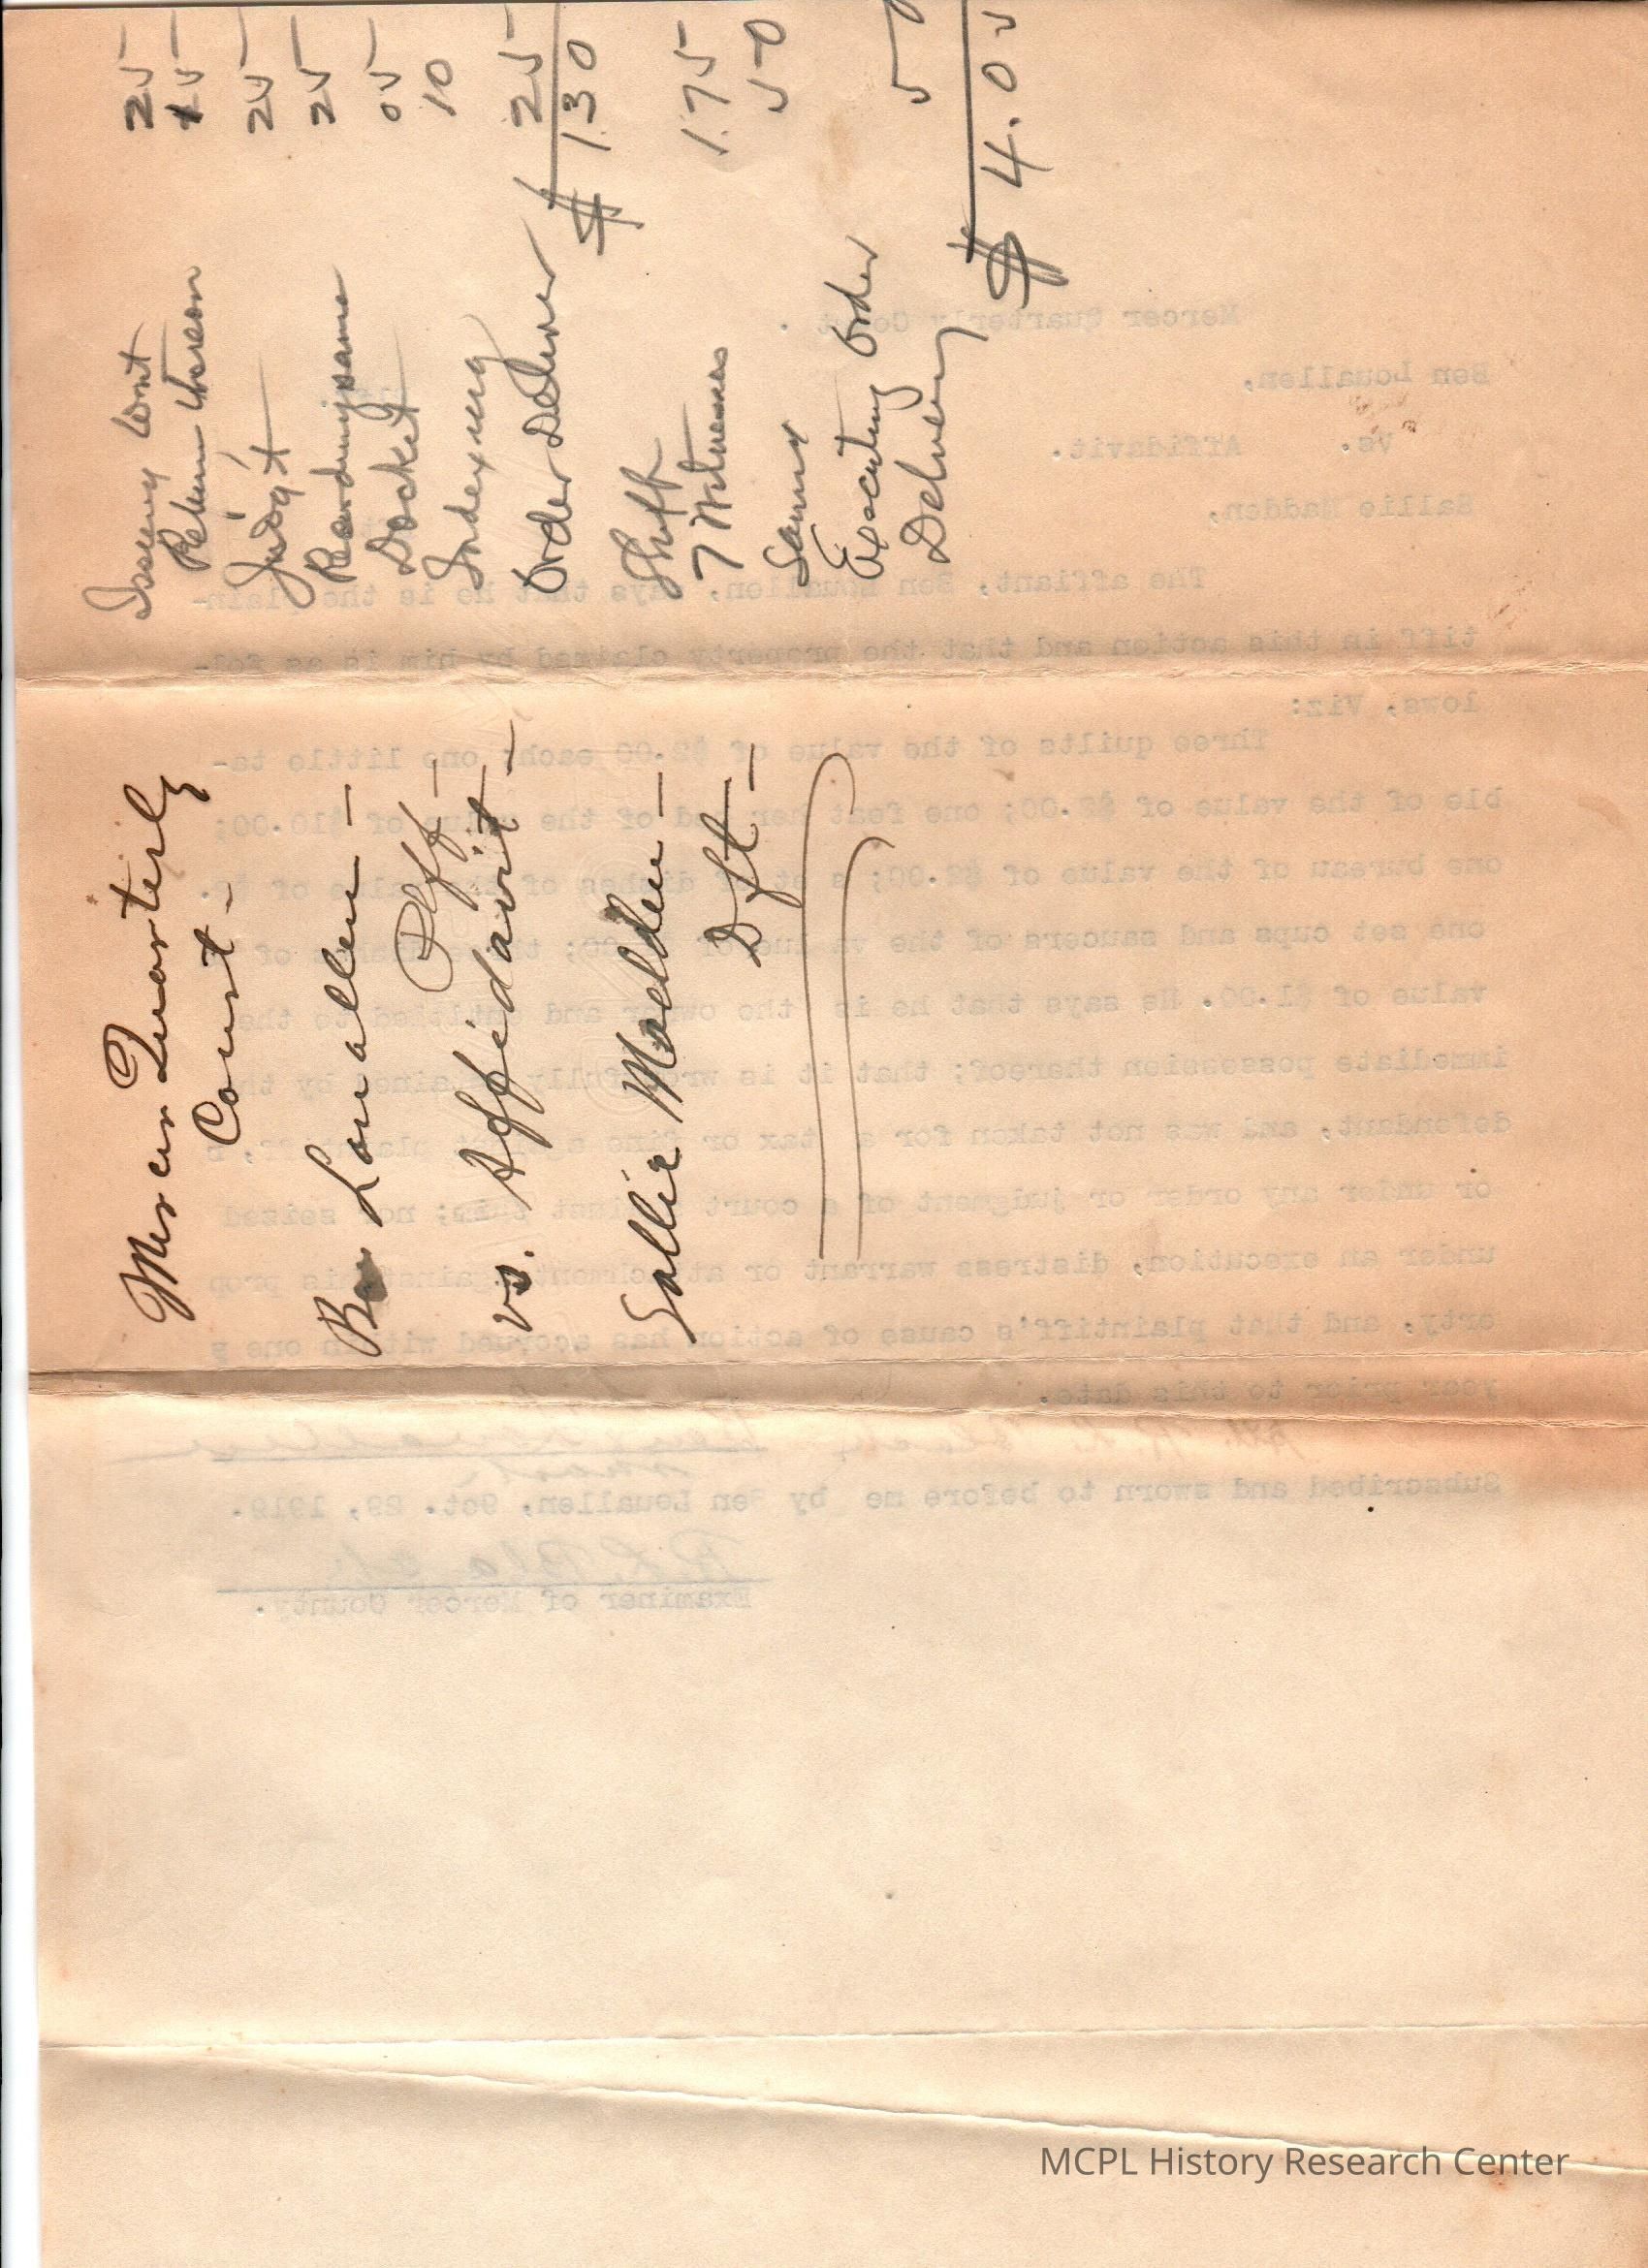 Mercer Quarterly
Court -
Ben Louallen -
Plff -
vs. Affidavit -
Sallie Madden -
Dft -
Issuing Warnt 25
Return thereon 15
Judgt 25
Recording same 25
Docket 05
Indexing 10
Order Deliver 25
$ 1.30
Shff
7 Witnesses 1.75
Sums 50
Executing Order
Delivery 50
$ 4.05
Mercer Quarterly Court.
Ben Louallen,
Vs. Affidavit.
Sallie Madden,
The affiant, Ben Louallen, says that he is the plain-
tiff in this action and that the property claimed by him is as fol-
lows, Viz:
Three quilts of the value of $2.00 each; one little ta-
ble of the value of $2.00; one feather bed of the value of $10.00;
one bureau of the value of $2.00; set of dishes of the value of
one set cups and saucers of the value of of
value of $1.00. He says that he is the owner and entitled to the
immediate possession thereof; that it is wrongfully detained by the
defendant, and was not taken for a tax or fine against plaintiff,
or under any order or judgment of a court against him; nor seized
under an execution, distress warrant or attachment against his prop
erty, and that plaintiff's cause of action has accrued within one
year prior to this date.
Subscribed and sworn to before me by Ben Louallen, Oct. 29, 1919.
Examiner of Mercer County.
MCPL History Research Center